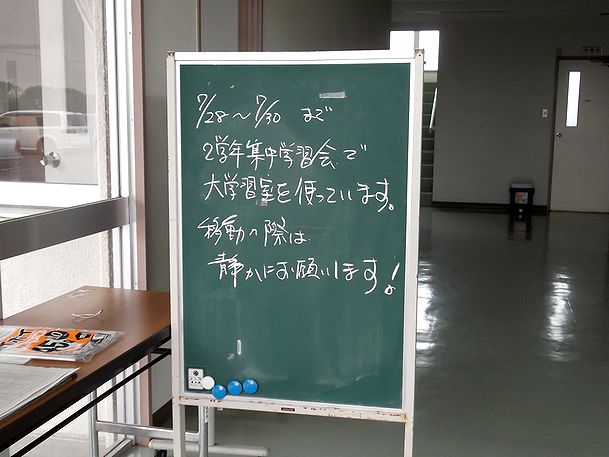 7/28〜7/30 まで
2学年集中学習会で
大学習室を使っています。
移動の際は
静かにお願いします!